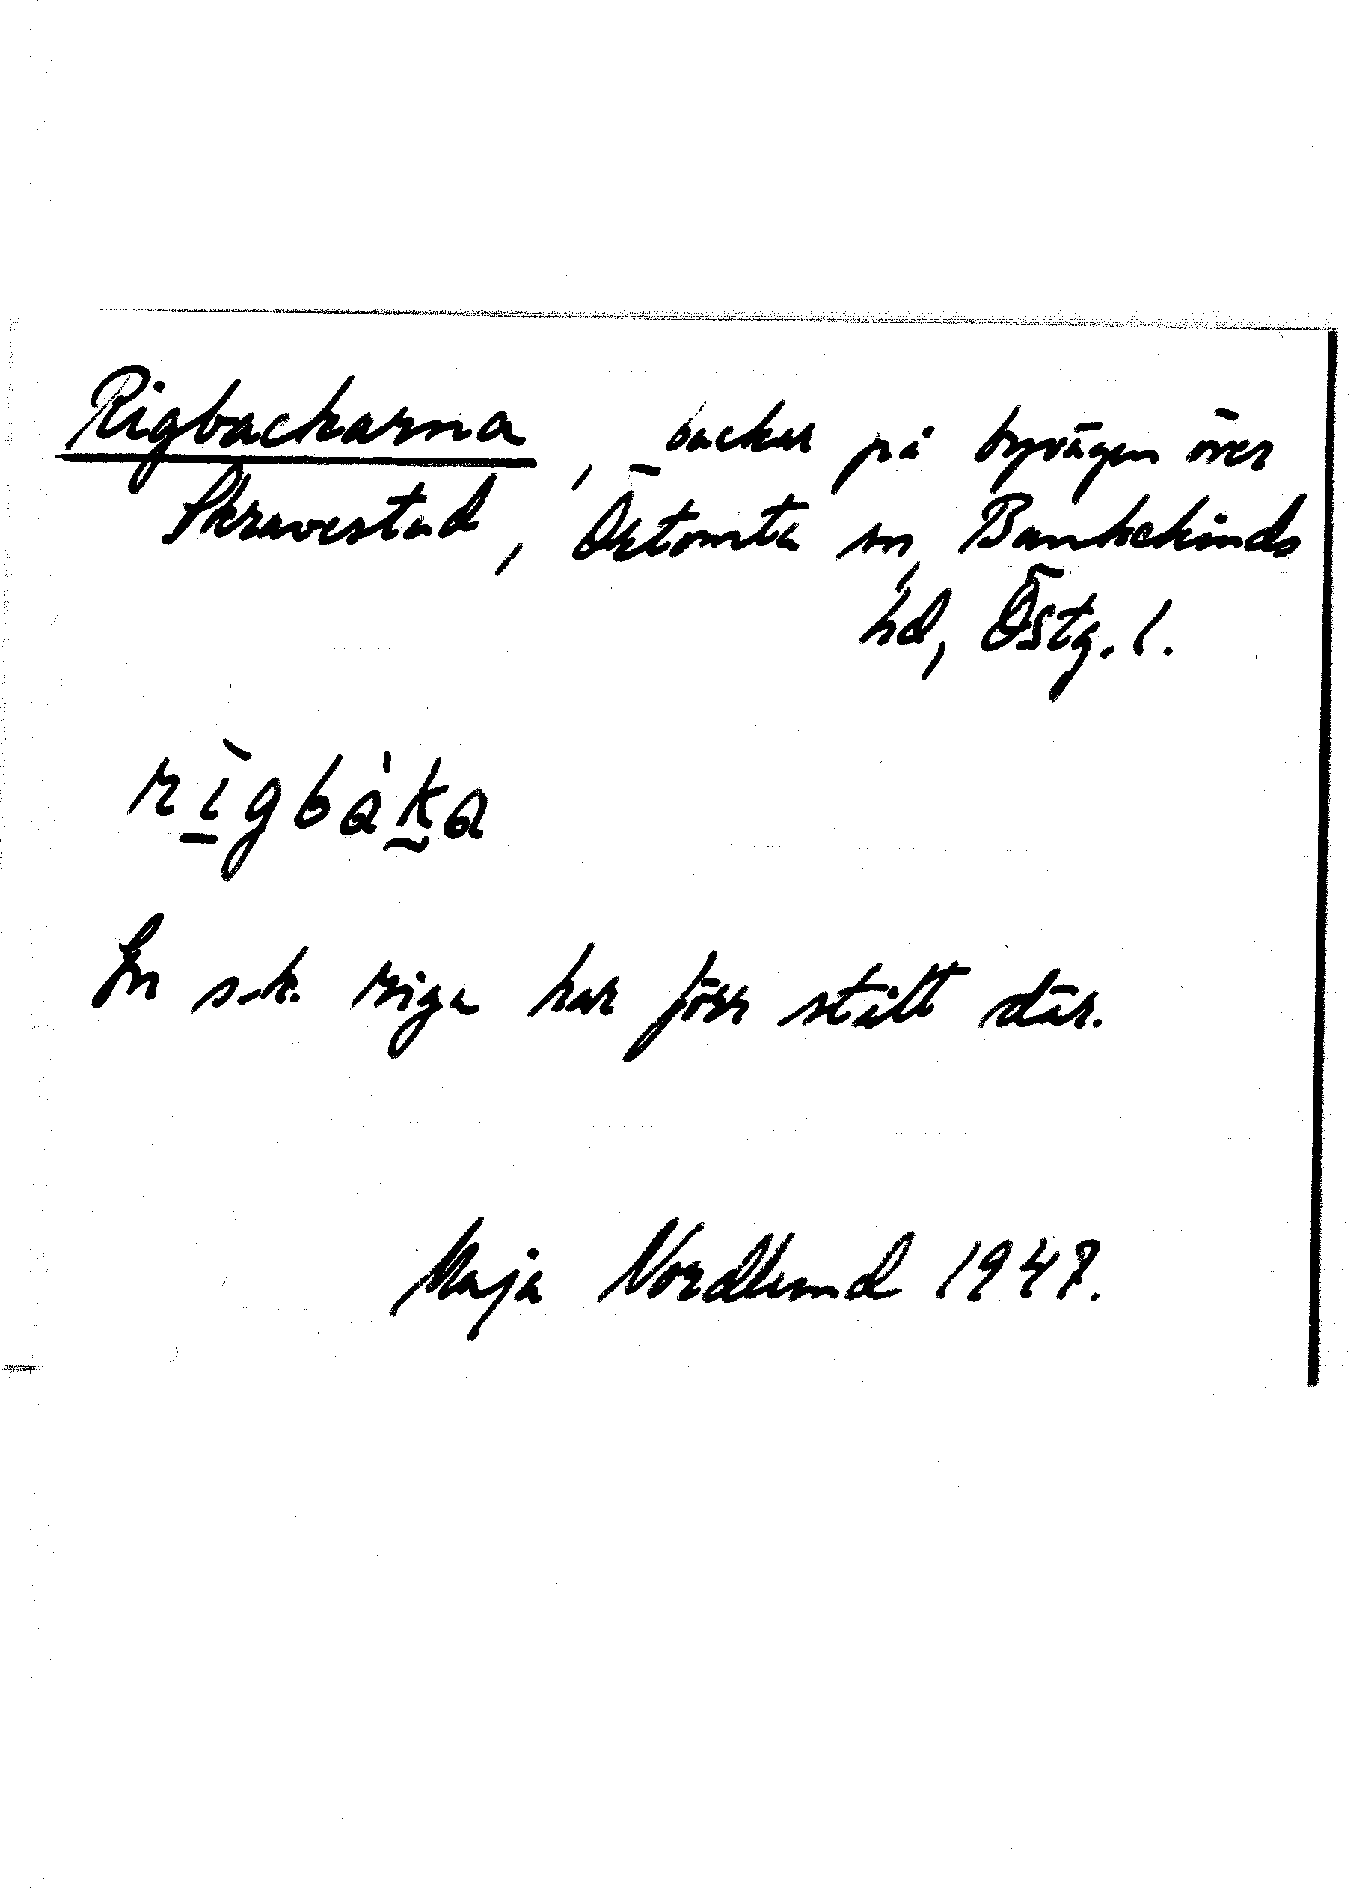 Rigbackarna, backar på byvägen över
Skravestad, Örtomta sn, Bankekinds
hd, Östg. l.
rìgbàka
En s.k. riga har förr stått där.
Maja Nordlund 1947.